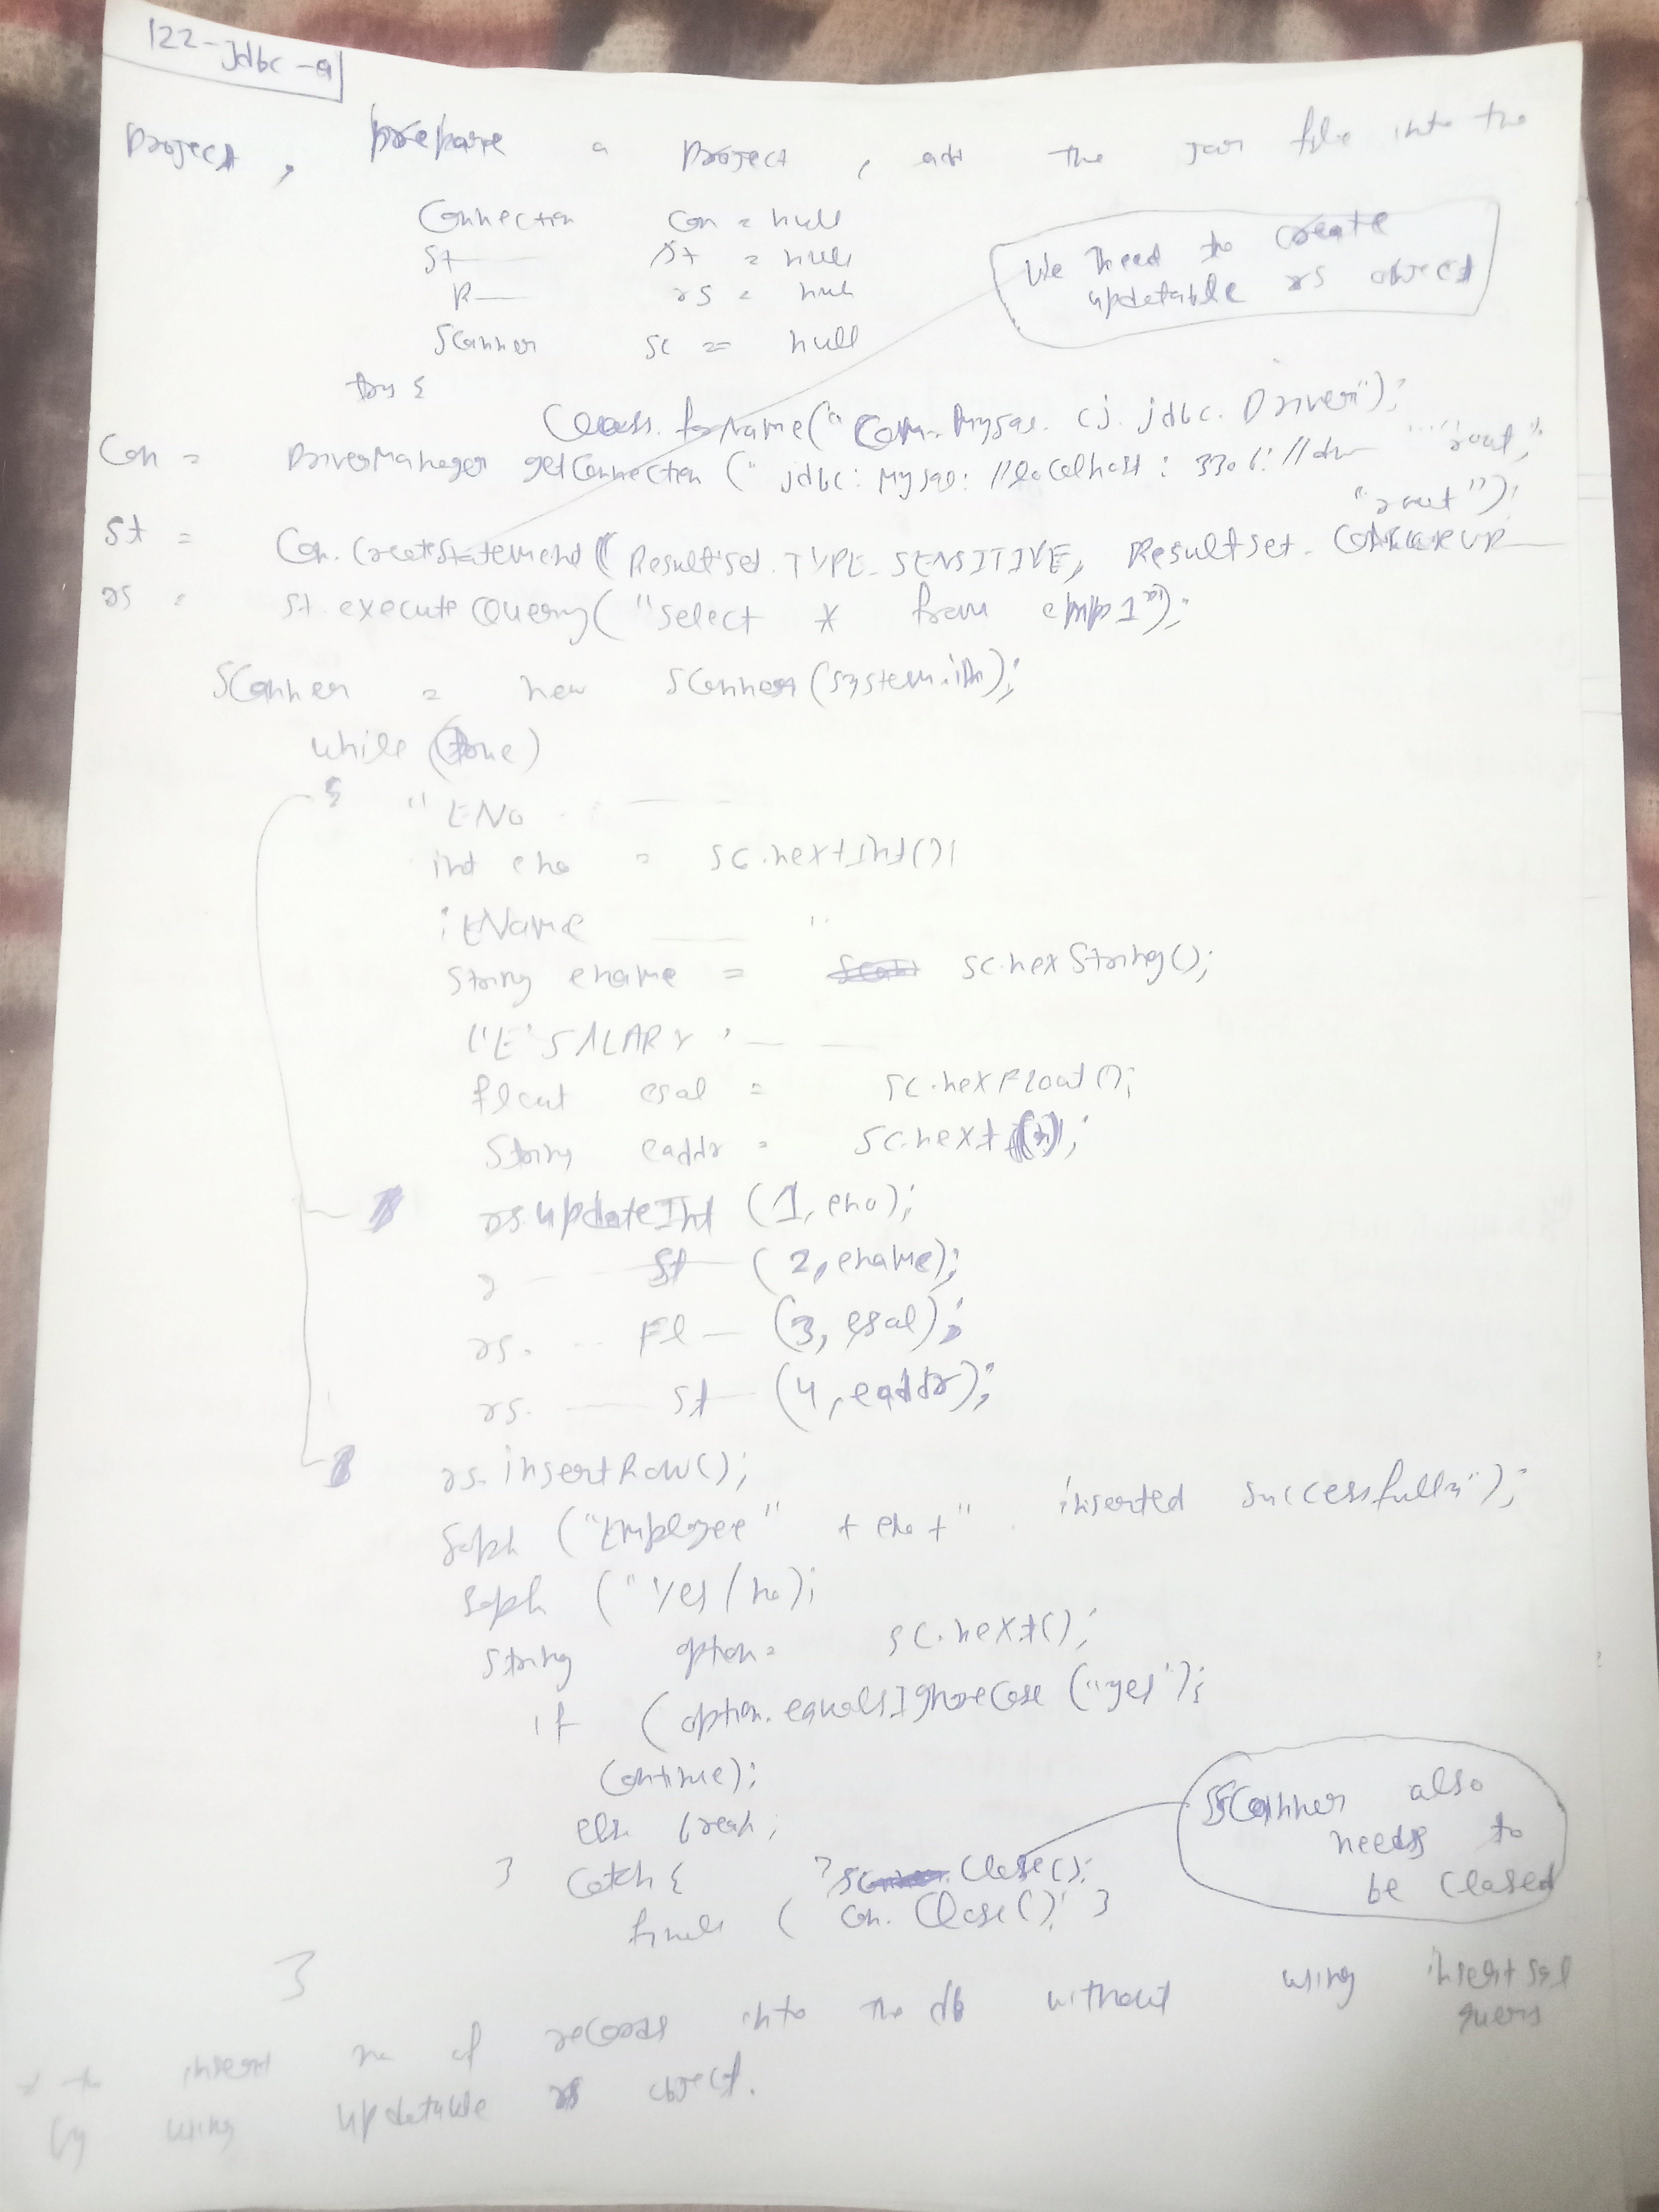 122-Jdbc-a
project, prepare a project, add the jar file into the
Connection con = null
St—— st = null
R—— rs = null
Scanner sc = null
We need to create
updatable rs object
try {
Class.forName("com.mysql.cj.jdbc.Driver");
Con = DriverManager getConnection ("jdbc:mysql://localhost:3306://db— "root",
"root");
St = Con.CreateStatement (ResultSet.TYPE_SENSITIVE, ResultSet.CONCURUP——
rs = st.executeQuery("select * from emp1");
Scanner = new Scanner(System.in);
while (true)
{ "ENo : ——
int eno = sc.nextInt();
; EName —— "
String ename = sc.nexString();
"E'SALARY ' — —
float esal = sc.nexFloat();
String eaddr = sc.next();
rs.updateInt (1, eno);
r —— St— (2, ename);
rs. -- Fl— (3, esal);
rs. —— st— (4, eaddr);
rs.insertRow();
Sopln ("Employee" + eno+" inserted successfully");
Sopln ("Yes/no);
String option = sc.next();
if (option.equalsIgnoreCase ("yes");
Continue);
else break;
} Catch { } Close();
Scanner also
needs to
be closed
con. Close(); }
}
* to insert no of records into the db without using insert sql
query
by using updatable rs object.